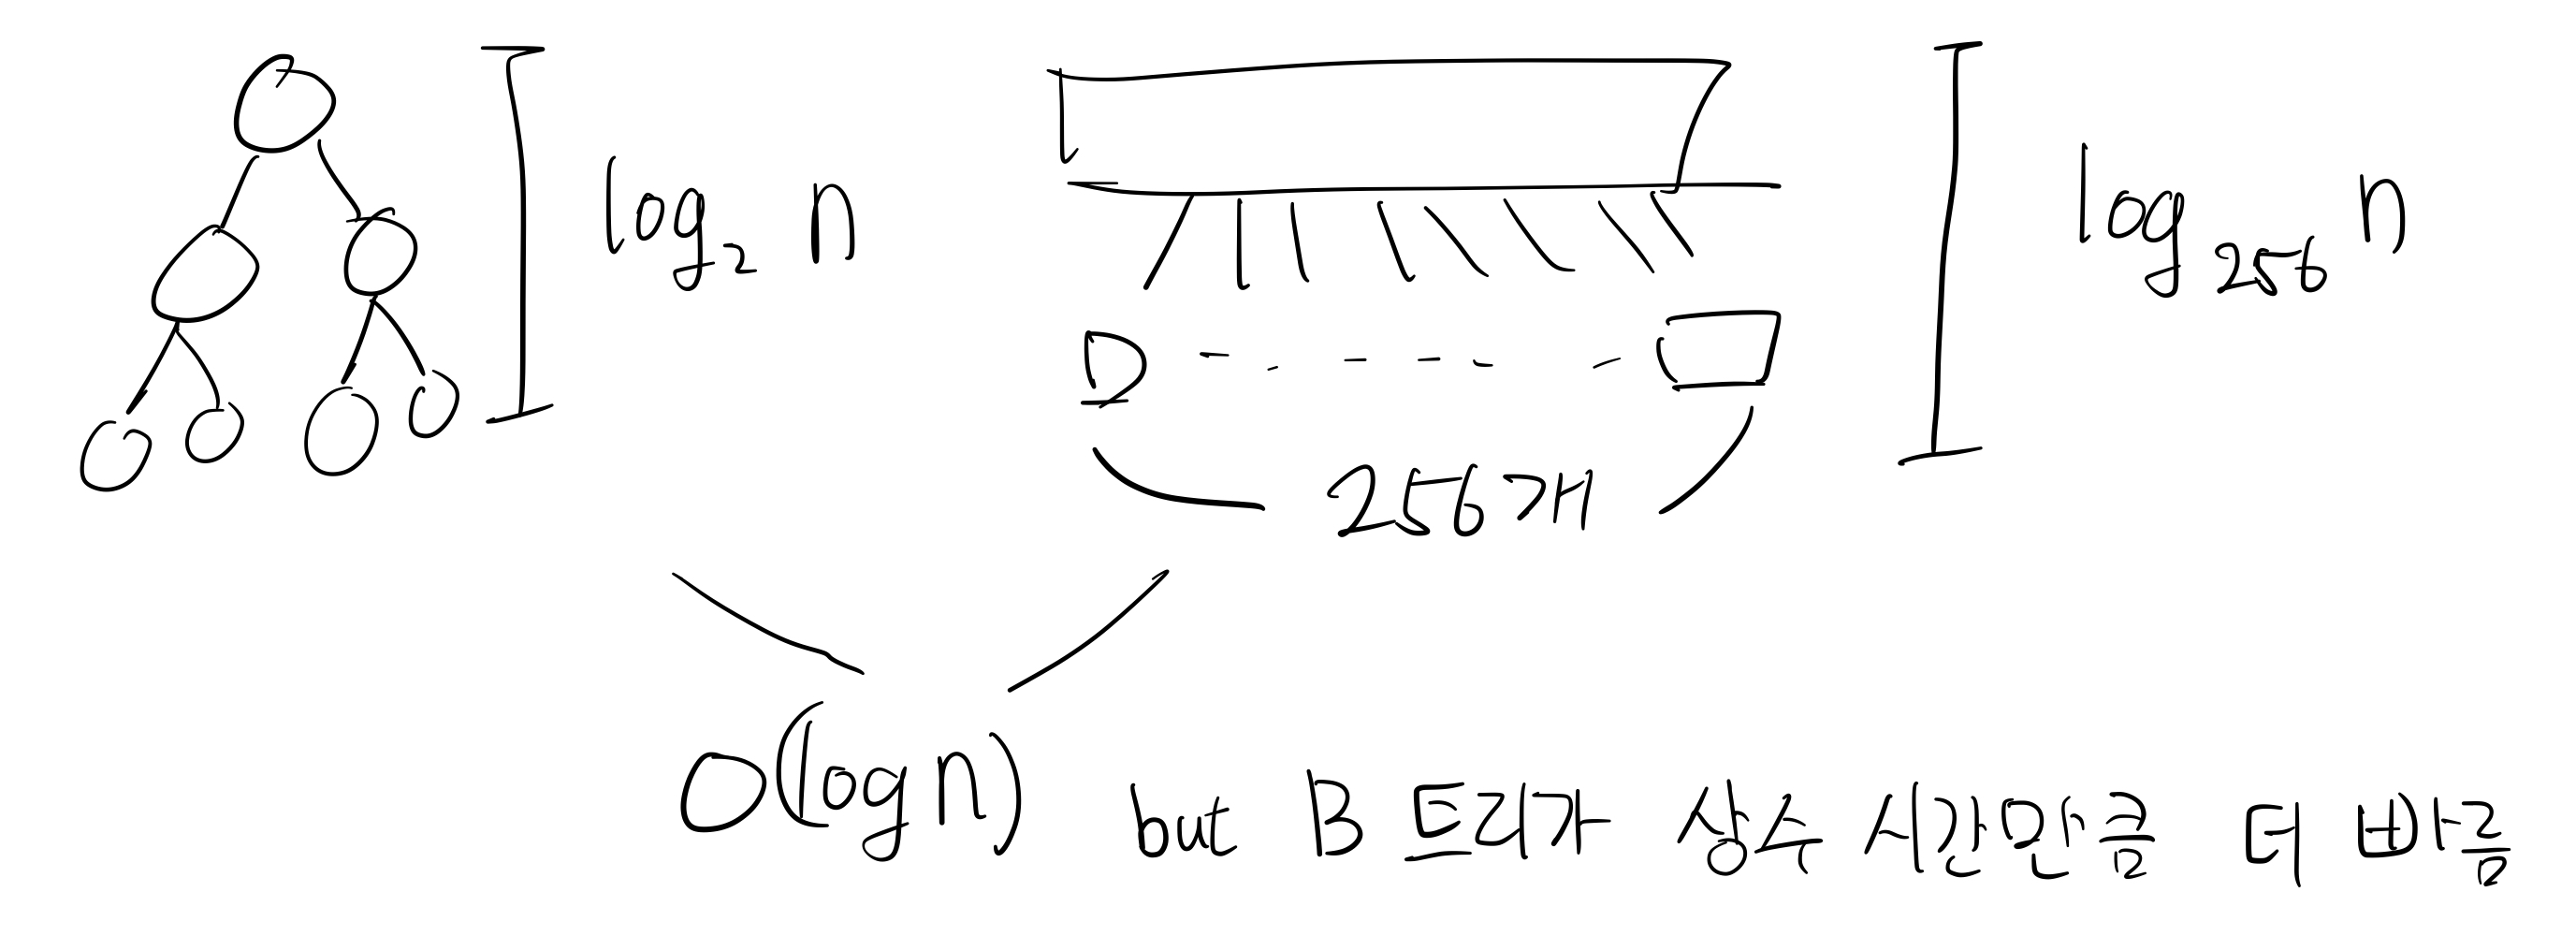 log₂ n
log₂₅₆ n
256개
O(log n) but B 트리가 상수 시간만큼 더 빠름